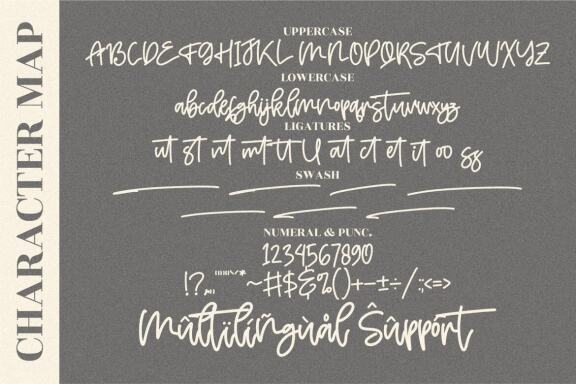 CHARACTER MAP
UPPERCASE
ABCDEFGHIJKLMNOPQRSTUVWXYZ
LOWERCASE
abcdefghijklmnopqrstuvwxyz
LIGATURES
ut st rt mt tt ll at ct et it oo ss
SWASH
NUMERAL & PUNC.
1234567890
!?.,:;""''\/* ~#$&%()+-±÷/:;<=>
Mûltïlíñgùål Sûppórt